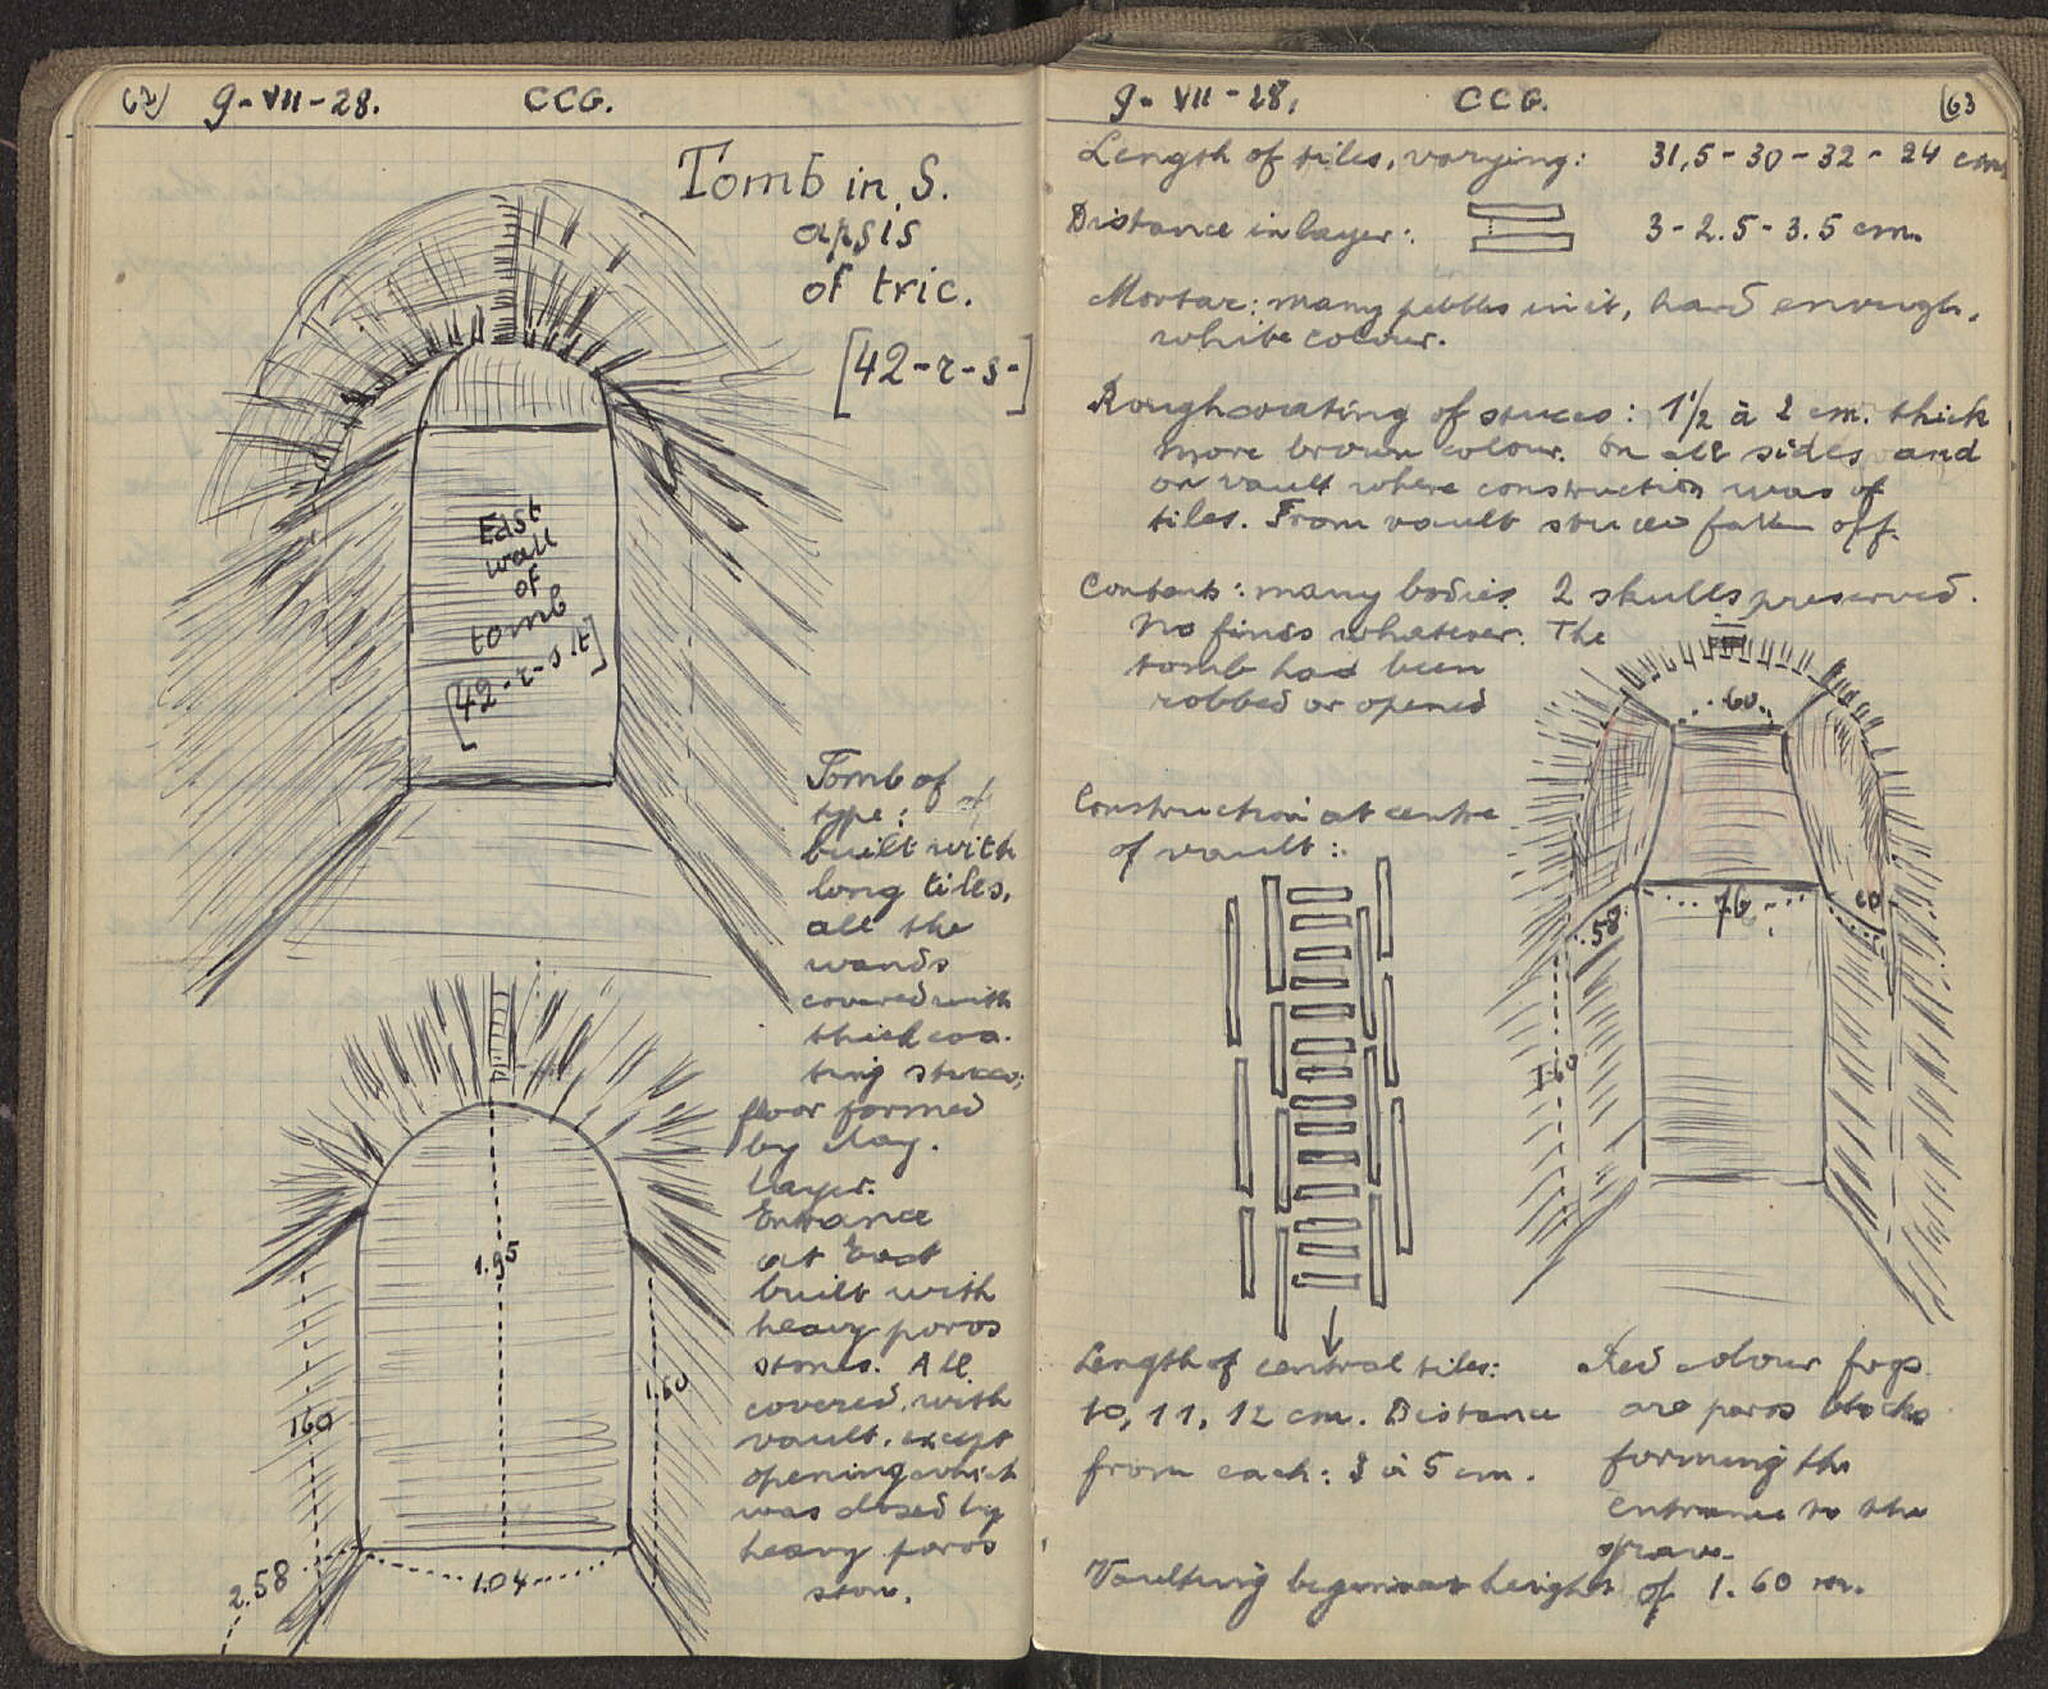 62) 9-VII-28. CCG.
Tomb in S.
apsis
of tric.
[42-r-s-]
East
wall
of
tomb
[42-r-s.t]
Tomb of
type: of
built with
long tiles,
all the
wands
covered with
thick coa-
ting stucco;
floor formed
by clay.
layer.
Entrance
at East
built with
heavy poros
stones. All
covered, with
vault, except
opening which
was closed by
heavy poros
ston.
1.95
160
1.60
2.58
1.04
9- VII-28, CCG. (63
Length of tiles, varying: 31,5-30-32-24 cm.
Distance in layer: 3-2.5-3.5 cm.
Mortar: many pebbles in it, hard enough,
white colour.
Rough coating of stucco: 1 1/2 à 2 cm. thick
more brown colour. On all sides and
on vault where construction was of
tiles. From vault stucco fallen off.
Contents: many bodies, 2 skulls preserved.
No finds whatever. The
tomb had been
robbed or opened
60
76
60
58
1.60
Construction at centre
of vault:
Length of central tiles:
10, 11, 12 cm. Distance
from each: 3 à 5 cm.
Red colour
are poros blocks
forming the
entrance to the
grave.
Vaulting begins at height of 1.60 m.